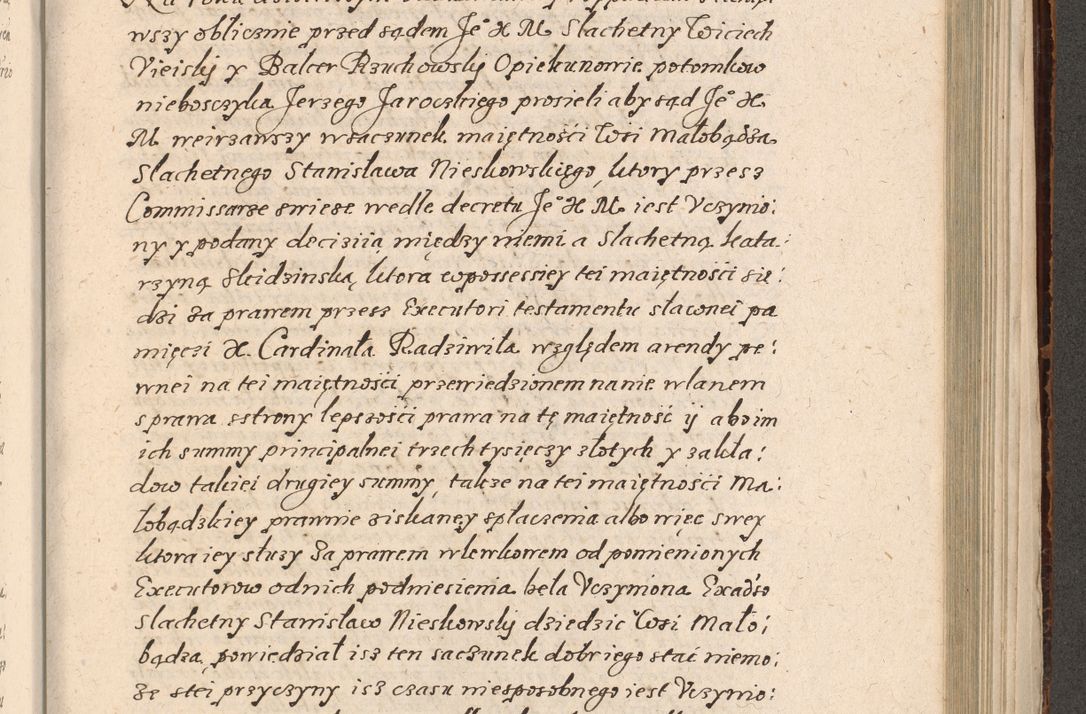 wszy oblicznie przed sądem Je° X M Slachetny Woiciech
Vieiskÿ y Balcer Rzuchowskÿ Opiekunowie potomkow
niebosczyka Jerzego Jaroczkiego prosieli aby sąd Je° X
M weirzawszy wsaczunek maiętnośći Wsi Małobądza
Slachetnego Stanisława Nieskowskiego, ktory przesz
Commissarze swieze wedle decretu Je° X M iest Vczynio:
ny y podany deciziią między niemi a Slachetną kata:
rzyną Skidzinską, ktora wpossessiey tei maiętnośći sie:
dzi za prawem przesz Executori testamentu slawnei pa
mięczi X. Cardinała Radziwiła względem arendy pe:
wnei na tei maiętnośći przewiedzionem nanie wlanem
sprawa zstrony lepszośći prawa na tę maiętność ij abo im
ich summy principalnei trzech tysięczy złotych y zakła:
dow takiei drugiey summy, takze na tei maiętnośći Ma:
łobądzkiey prawnie ziskaney spłaczenia albo więc swey
ktora iey słuzy za prawem wlewkowem od pomienionych
Executorow odnich podniesienia beła Vczyniona Exadso
slachetny Stanisław Nieskowskÿ dziedzic Wsi Mało:
bądza, powiedział isz ten saczunek dobr iego stać niemo:
ze stei przyczyny isz czasu niesposobnego iest Vczynio: